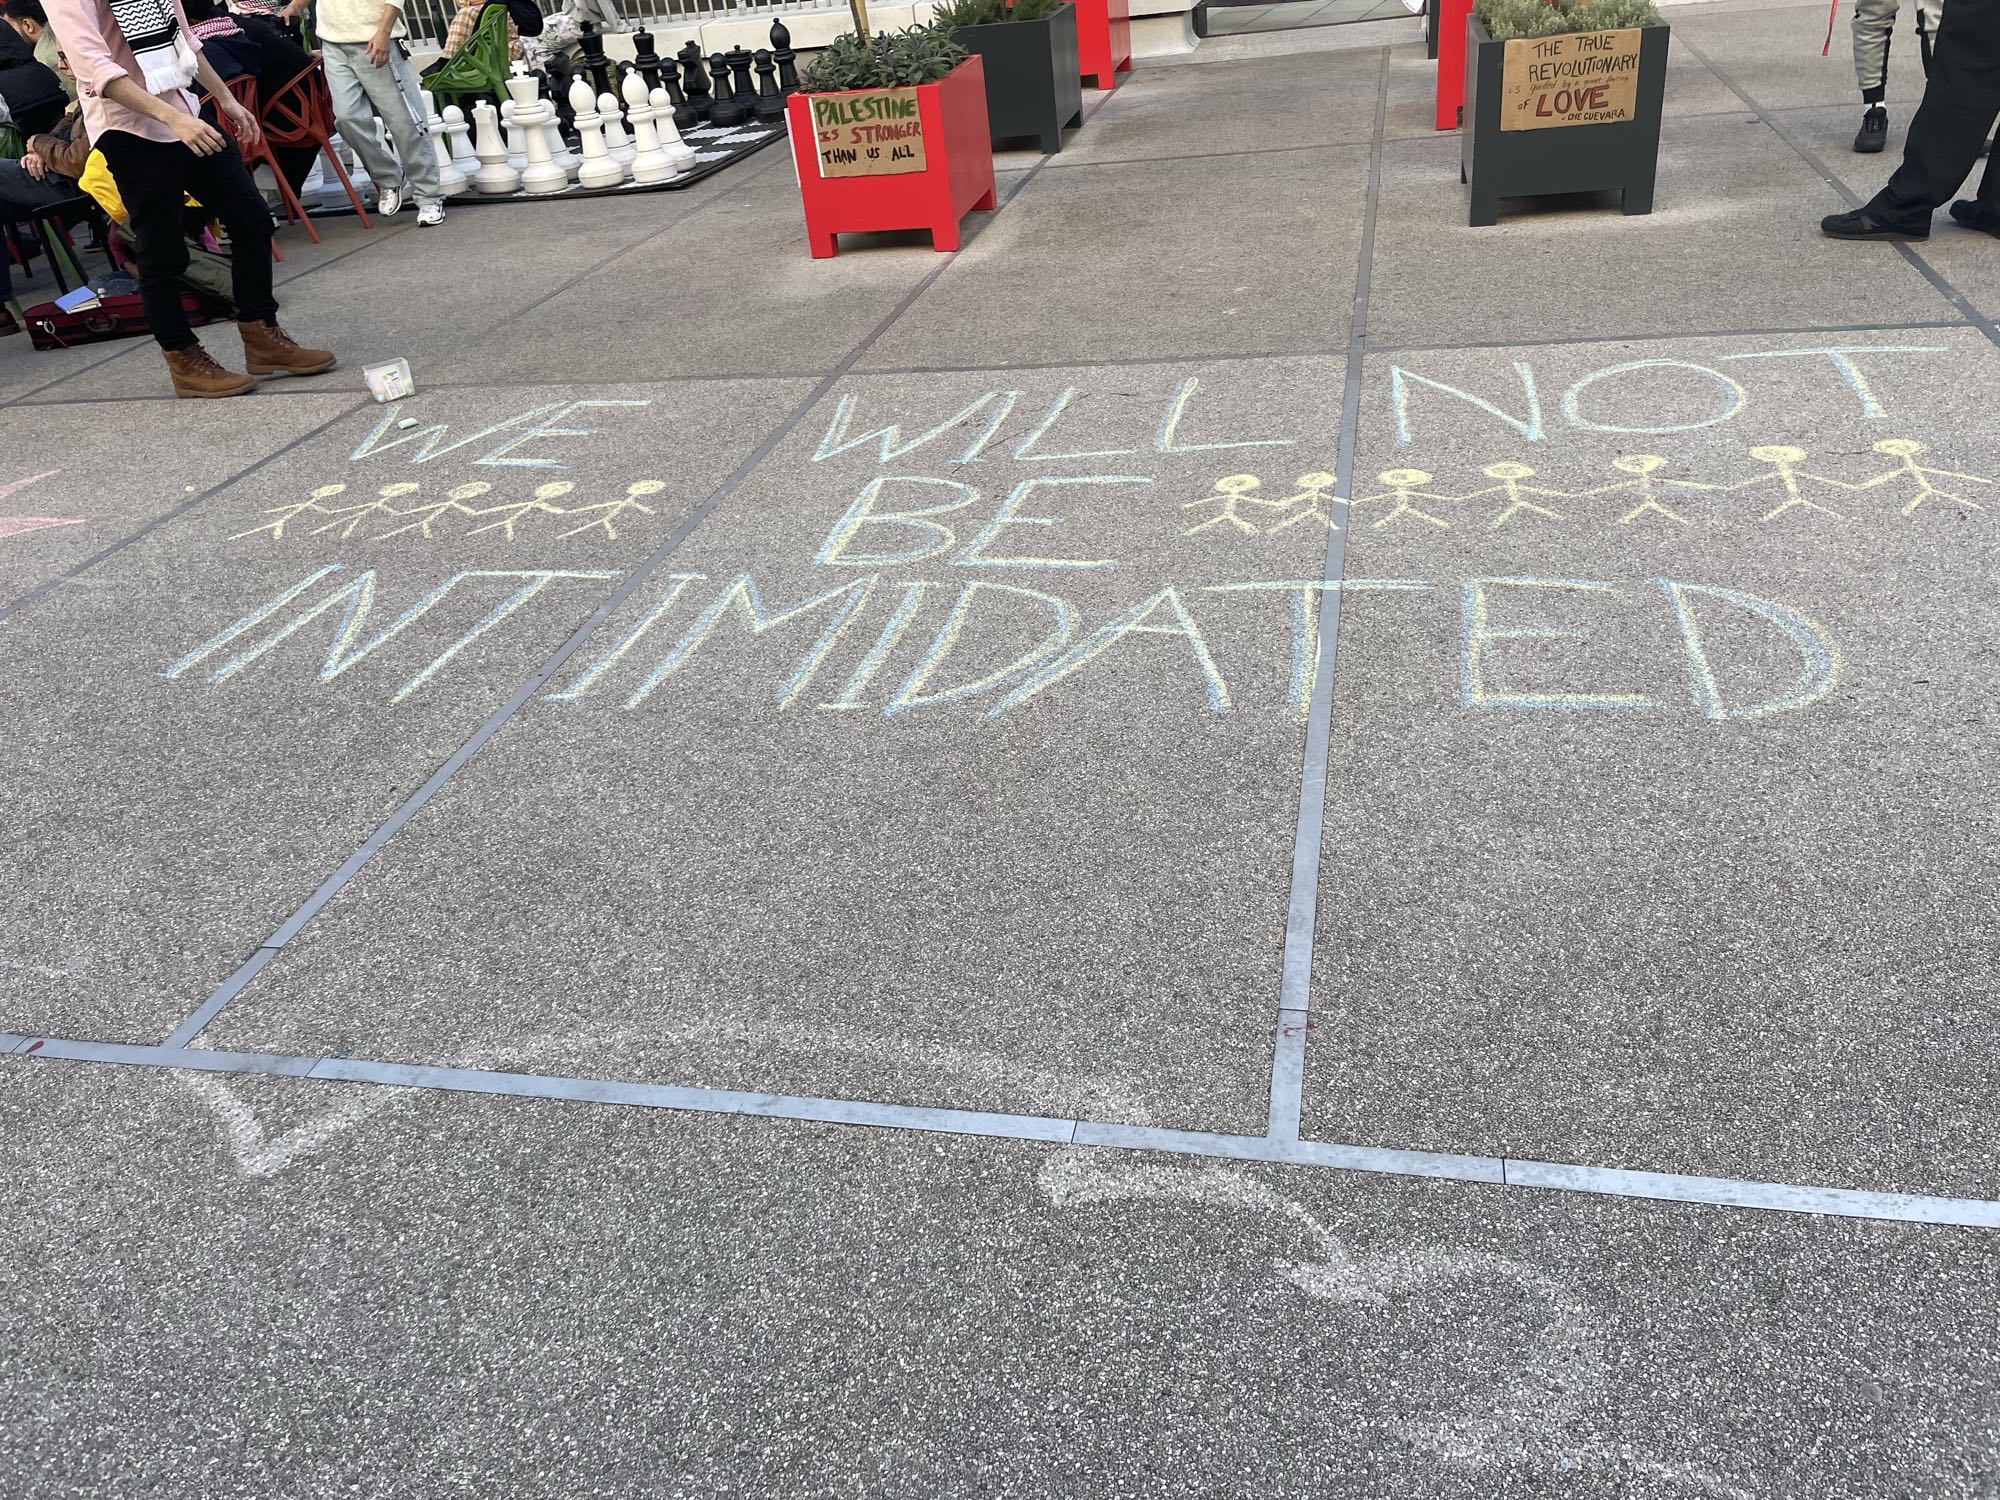 PALESTINE
IS STRONGER
THAN US ALL
THE TRUE
REVOLUTIONARY
is guided by a great feeling
of LOVE
- CHE GUEVARA
WE WILL NOT
BE
INTIMIDATED